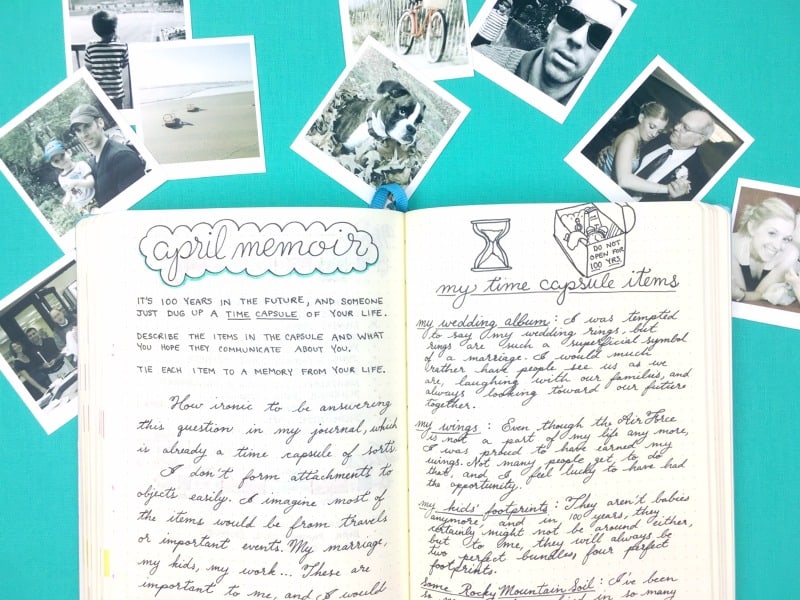 april memoir
IT'S 100 YEARS IN THE FUTURE, AND SOMEONE
JUST DUG UP A TIME CAPSULE OF YOUR LIFE.
DESCRIBE THE ITEMS IN THE CAPSULE AND WHAT
YOU HOPE THEY COMMUNICATE ABOUT YOU.
TIE EACH ITEM TO A MEMORY FROM YOUR LIFE.
How ironic to be answering
this question in my journal, which
is already a time capsule of sorts.
I don't form attachments to
objects easily. I imagine most of
the items would be from travels
or important events. My marriage,
my kids, my work... These are
important to me, and I would
DO NOT
OPEN FOR
100 YRS.
my time capsule items
my wedding album: I was tempted
to say my wedding rings, but
rings are such a superficial symbol
of a marriage. I would much
rather have people see us as we
are, laughing with our families, and
always looking toward our future
together.
my wings: Even though the Air Force
is not a part of my life any more,
I was proud to have earned my
wings. Not many people get to do
that, and I feel lucky to have had
the opportunity.
my kids' footprints: They aren't babies
anymore and in 100 years, they
certainly might not be around either,
but to me, they will always be
two perfect bundles, four perfect
footprints.
Some Rocky Mountain Soil: I've been
in so many